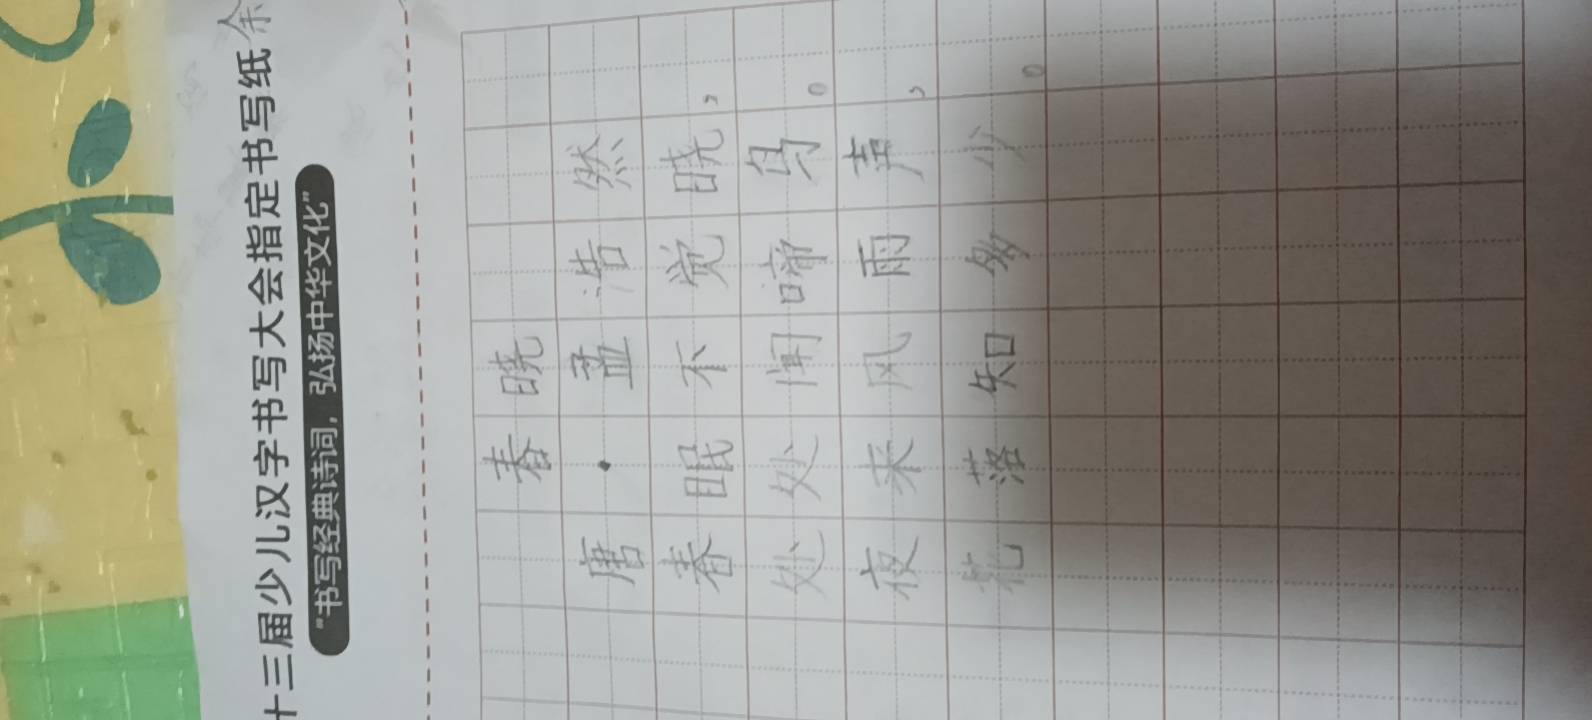 十三届少儿汉字书写大会指定书写纸 余
"书写经典诗词，弘扬中华文化"
春晓
唐·孟浩然
春眠不觉晓，
处处闻啼鸟。
夜来风雨声，
花落知多少。